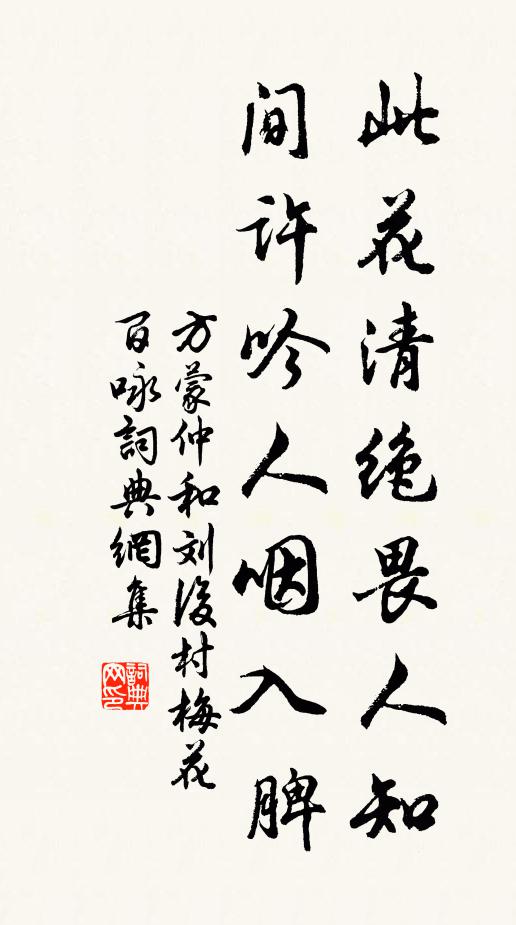 此花清绝畏人知
间许吟人咽入脾
方蒙仲和刘後村梅花
百咏詞典網集
詞典网印